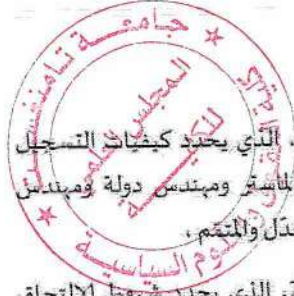 جامعة تامنغست
المجلس العلمي
للكلية
والعلوم السياسية
، الذي يحدد كيفيات التسجيل
الماستر ومهندس دولة ومهندس
المعدّل والمتمّم ،
الذي يحدد شروط الالتحاق